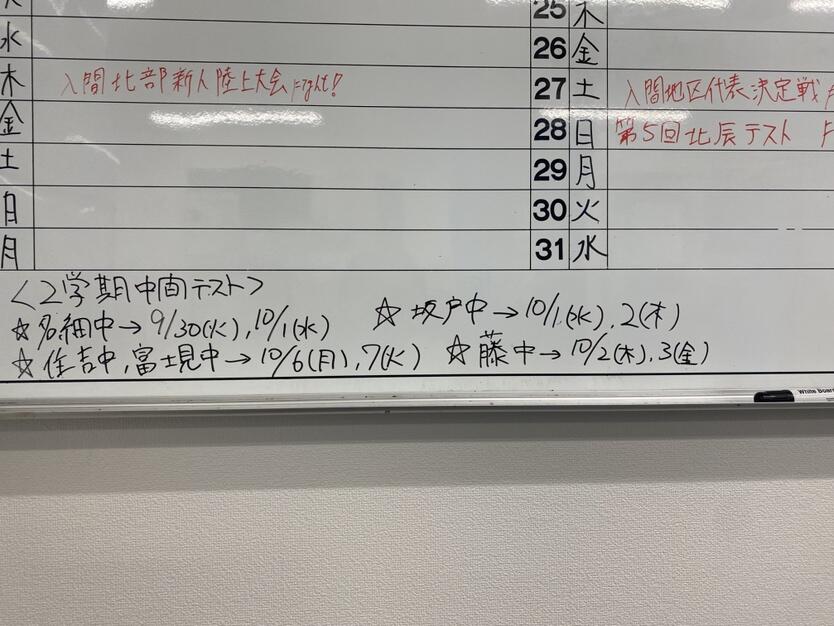 25 木
水
26 金
木 入間北部新人陸上大会
27 土 入間地区代表決定戦
金
28 日 第5回北辰テスト
土
29 月
日
30 火
月
31 水
<2学期中間テスト>
☆名細中→9/30(火),10/1(水) ☆坂戸中→10/1(水),2(木)
☆住吉中,富士見中→10/6(月),7(火) ☆藤中→10/2(木),3(金)
White Board